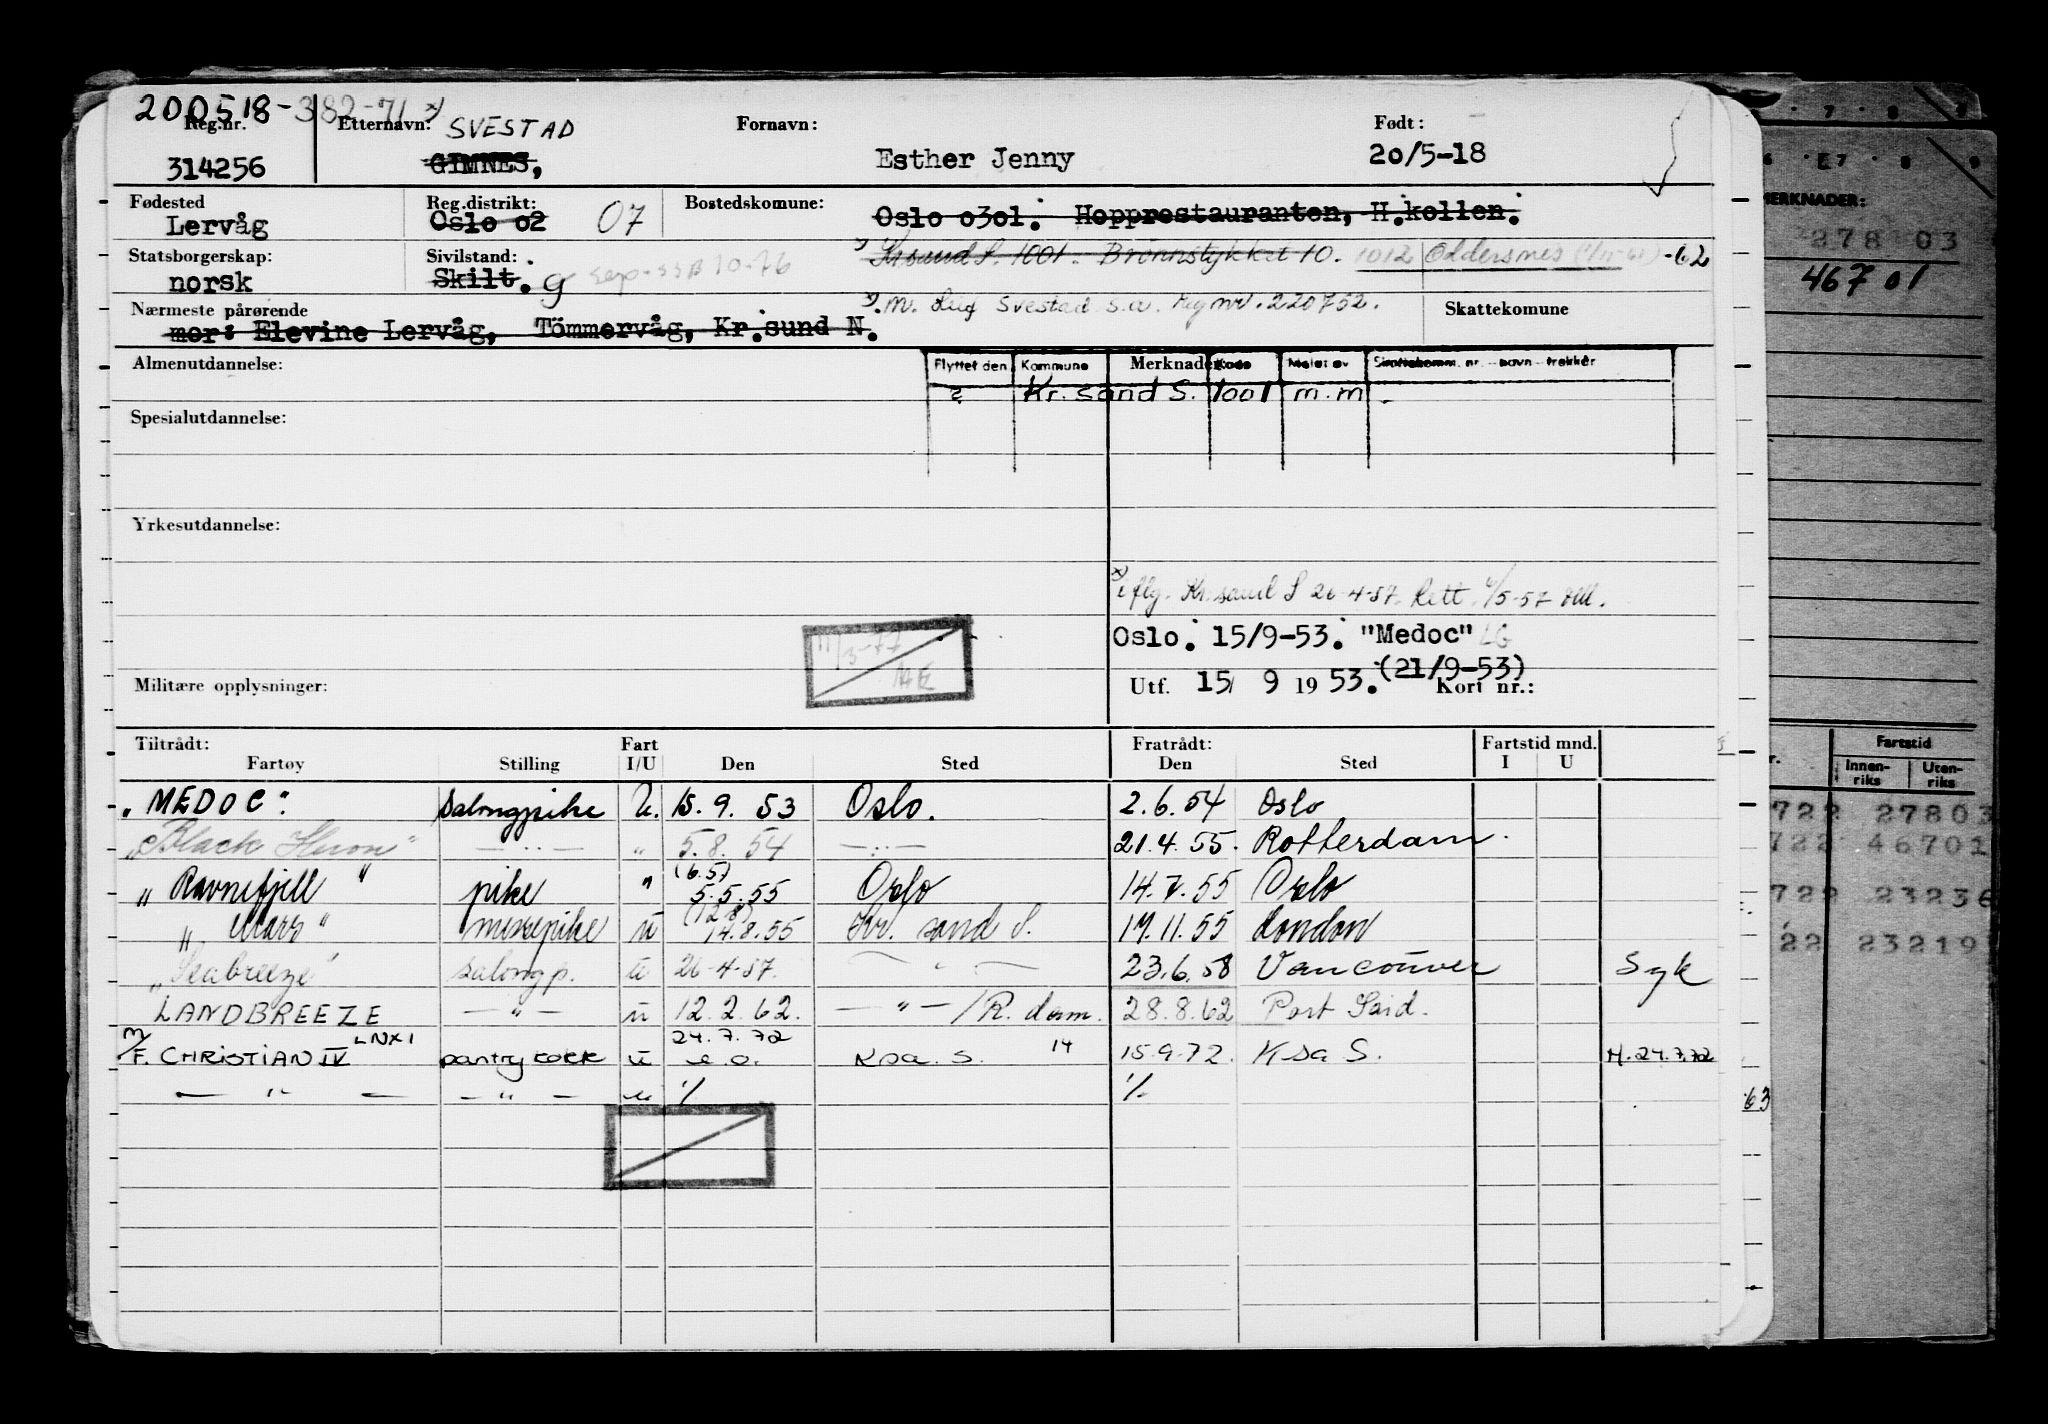 200518-382-71 x)
Reg.nr. Etternavn: SVESTAD Fornavn: Født:
314256 GIMNES, Esther Jenny 20/5-18
Fødested Reg.distrikt: Bostedskomune:
Lervåg Oslo 02 07 Oslo 0301. Hopprestauranten, H.kollen.
Statsborgerskap: Sivilstand: x) Kr.sand S. 1001. Brønnstykket 10. 1012 Oddersnes -62
norsk Skilt. g sep-SSB 10-76
Nærmeste pårørende x) m. Leif Svestad s.a. Reg nr. 220752. Skattekomune
mor: Elevine Lervåg, Tömmervåg, Kr.sund N.
Almenutdannelse: Flyttet den Kommune Merknader: Kode Meldt av Skattekomm. nr. - navn - trekkår
? Kr. sand S. 1001 m.m.
Spesialutdannelse:
Yrkesutdannelse:
x) iflg. Kr.sand S 26-4-57. Rett. 6/5-57
Oslo: 15/9-53: "Medoc" LG
11/3-77 (21/9-53)
Militære opplysninger: Utf. 15/ 9 19 53. Kort nr.:
Tiltrådt: Fart Fratrådt: Fartstid mnd.
Fartøy Stilling I/U Den Sted Den Sted I U
"MEDOC". Salongpike U. 15. 9. 53 Oslo. 2.6.54 Oslo
"Black Heron" — " — " 5.8. 54 — " — 21.4.55. Rotterdam
(6.5)
"Ravnefjell" pike " 5.5.55 Oslo 14.7.55 Oslo
(12.8)
"Mars" messepike u 14.8.55 Kr. sand S. 17.11.55 London
"Seabreeze" salongp. u 26-4-57. — " — 23.6.58 Vancouver Syk
LANDBREEZE — " — u 12.2.62. — " — /R.dam. 28.8.62 Port Said.
LNXI 24.7.72
M/F. CHRISTIAN IV pantry kokk u e.o. Ksa. S. 14 15.9.72. Ksa S. H. 24.7.72
— " — — " — u ./. ./.
7 8 9
6 7 8 9
MERKNADER:
278 03
467 01
Fartstid
Innen-riks Uten-riks
722 27803
722 46701
722 23236
22 23219
63